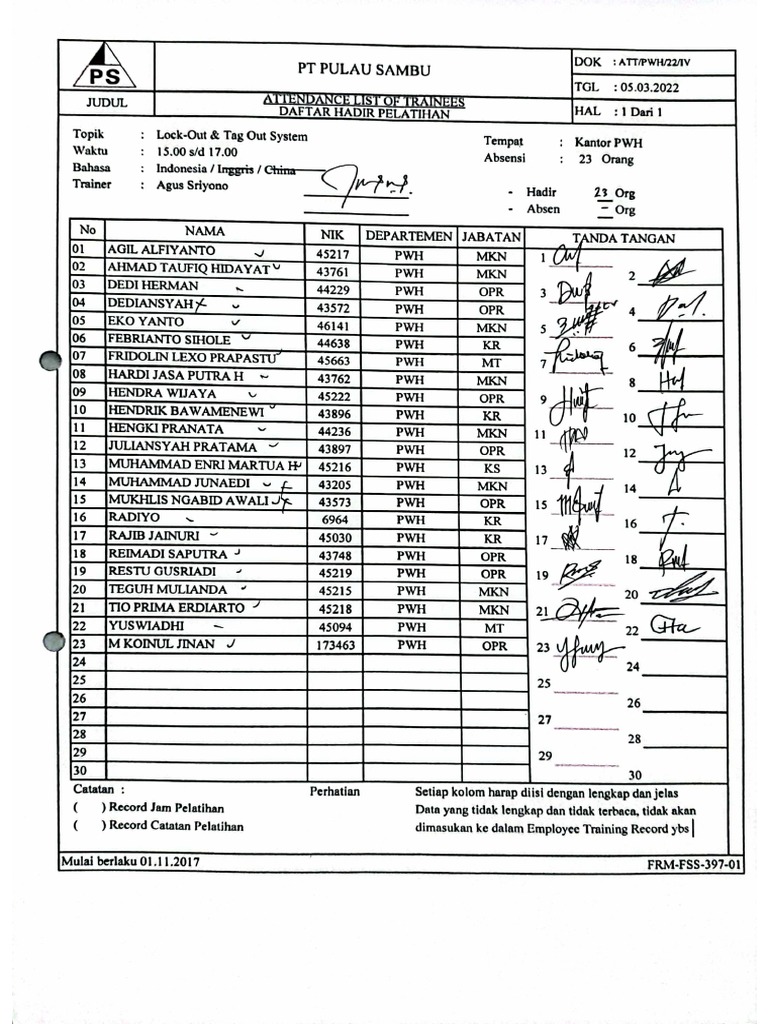 PS
PT PULAU SAMBU
DOK : ATT/PWH/22/IV
TGL : 05.03.2022
JUDUL
ATTENDANCE LIST OF TRAINEES
DAFTAR HADIR PELATIHAN
HAL : 1 Dari 1
Topik : Lock-Out & Tag Out System
Waktu : 15.00 s/d 17.00
Bahasa : Indonesia / Inggris / China
Trainer : Agus Sriyono
Tempat : Kantor PWH
Absensi : 23 Orang
- Hadir 23 Org
- Absen - Org
No NAMA NIK DEPARTEMEN JABATAN TANDA TANGAN
01 AGIL ALFIYANTO 45217 PWH MKN 1
02 AHMAD TAUFIQ HIDAYAT 43761 PWH MKN 2
03 DEDI HERMAN 44229 PWH OPR 3
04 DEDIANSYAH 43572 PWH OPR 4
05 EKO YANTO 46141 PWH MKN 5
06 FEBRIANTO SIHOLE 44638 PWH KR 6
07 FRIDOLIN LEXO PRAPASTU 45663 PWH MT 7
08 HARDI JASA PUTRA H 43762 PWH MKN 8
09 HENDRA WIJAYA 45222 PWH OPR 9
10 HENDRIK BAWAMENEWI 43896 PWH KR 10
11 HENGKI PRANATA 44236 PWH MKN 11
12 JULIANSYAH PRATAMA 43897 PWH OPR 12
13 MUHAMMAD ENRI MARTUA H 45216 PWH KS 13
14 MUHAMMAD JUNAEDI 43205 PWH MKN 14
15 MUKHLIS NGABID AWALI 43573 PWH OPR 15
16 RADIYO 6964 PWH KR 16
17 RAJIB JAINURI 45030 PWH KR 17
18 REIMADI SAPUTRA 43748 PWH OPR 18
19 RESTU GUSRIADI 45219 PWH OPR 19
20 TEGUH MULIANDA 45215 PWH MKN 20
21 TIO PRIMA ERDIARTO 45218 PWH MKN 21
22 YUSWIADHI 45094 PWH MT 22
23 M KOINUL JINAN 173463 PWH OPR 23
24 24
25 25
26 26
27 27
28 28
29 29
30 30
Catatan :
( ) Record Jam Pelatihan
( ) Record Catatan Pelatihan
Perhatian
Setiap kolom harap diisi dengan lengkap dan jelas
Data yang tidak lengkap dan tidak terbaca, tidak akan
dimasukan ke dalam Employee Training Record ybs
Mulai berlaku 01.11.2017
FRM-FSS-397-01